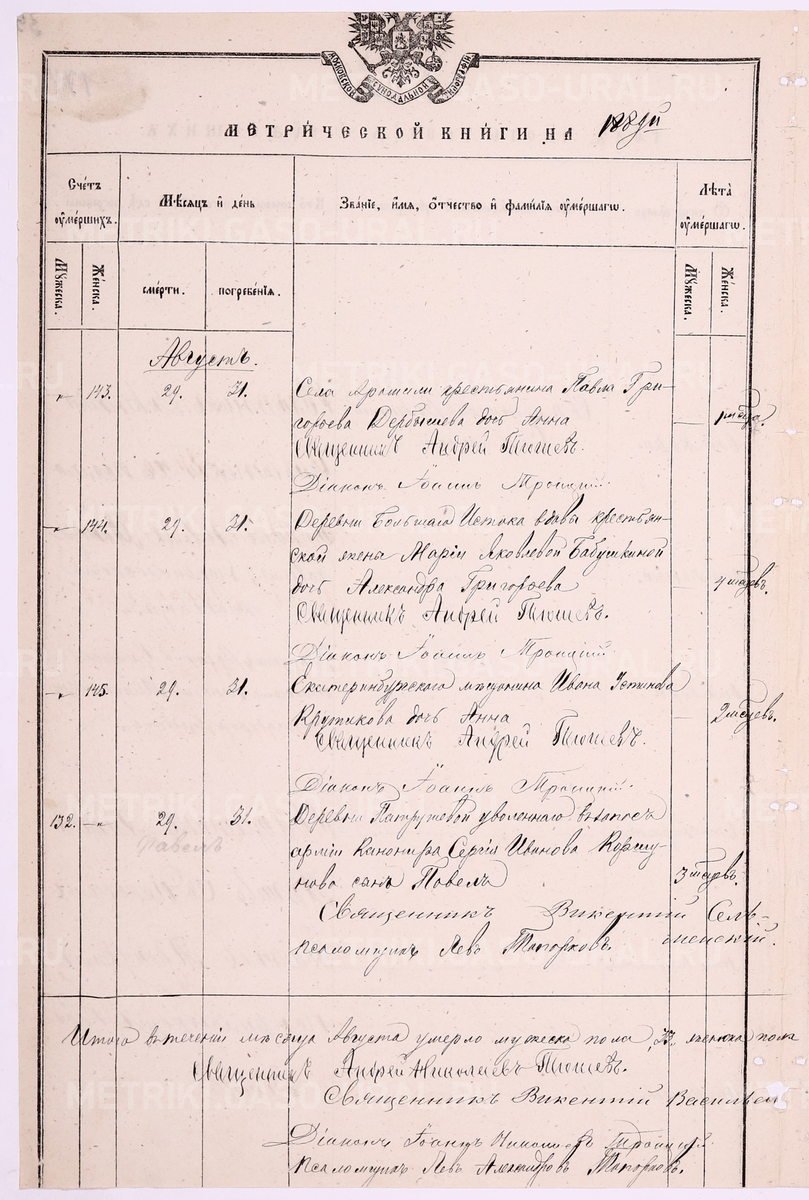 МОСКОВСКОЙ СѴНОДАЛЬНОЙ ТИПОГРАФІИ
МЕТРИ́ЧЕСКОЙ КНИ́ГИ НА
Счетъ оумершихъ.
Мѣсяцъ и день
Званіе, имя, отчество и фамилія оумершаго.
Лѣта оумершаго.
Мужеска.
Женска.
смерти.
погребенія.
Мужеска.
Женска.
Августъ.
143. 29. 31. Села Арамили крестьянина Павла Гри-
горьева Дербышева дочь Анна
Священникъ Андрей
Діаконъ Іоаннъ Троицкій.
144. 29. 31. Деревни Большаго Истока вдовы крестьян-
ской жены Маріи Яковлевой Бабушкиной
дочь Александра Григорьева 4 мѣсяцевъ.
Священникъ Андрей
Діаконъ Іоаннъ Троицкій.
145. 29. 31. Екатеринбужского мѣщанина Ивана Устинова
Крутикова дочь Анна 2 мѣсяцевъ.
Священникъ Андрей
Діаконъ Іоаннъ Троицкій.
132. 29. 31. Деревни Патрушевой уволеннаго въ запасъ
арміи канонира Сергія Иванова Коршу-
нова сынъ Павелъ 3 мѣсяцевъ.
Священникъ Викентій
псаломщикъ Левъ Топорковъ.
Итого въ теченіи мѣсяца Августа умерло мужеска пола 33. женска пола
Священникъ Андрей Николаевъ
Священникъ Викентій Васильевъ
Діаконъ Іоаннъ Николаевъ Троицкій.
псаломщикъ Левъ Александровъ Топорковъ.
METRIKI.GASO-URAL.RU